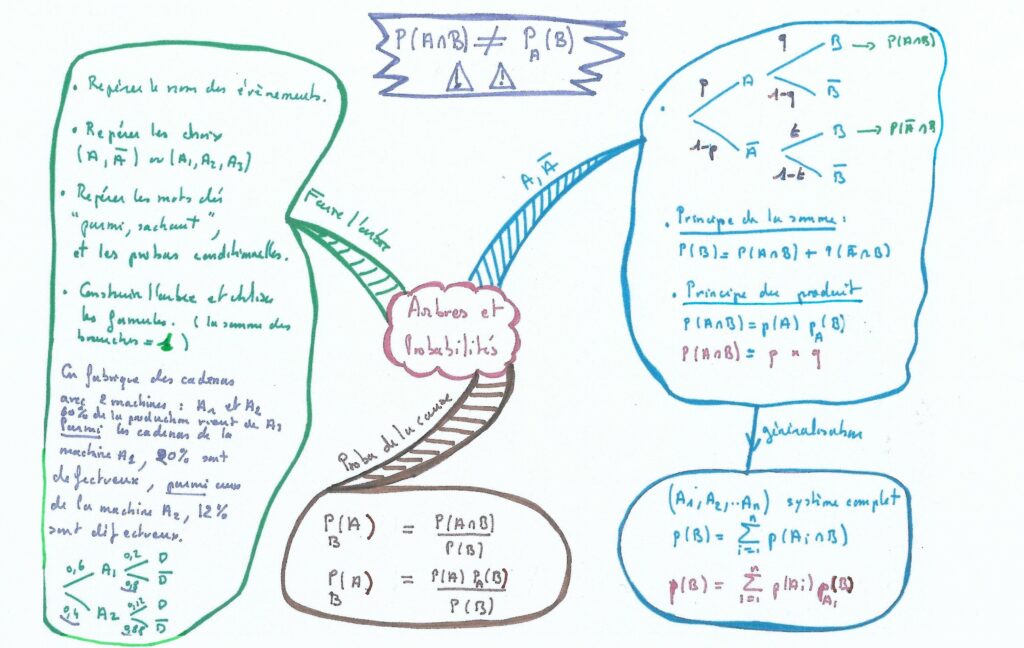 P(A∩B) ≠ P_A(B)
⚠ ⚠
• Repérer le nom des évènements.
• Repérer les choix
(A, A̅) ou (A₁, A₂, A₃)
• Repérer les mots clés
"parmi, sachant",
et les probas conditionnelles.
• Construire l'arbre et utiliser
les formules. (la somme des
branches = 1)
On fabrique des cadenas
avec 2 machines : A₁ et A₂
60% de la production vient de
Parmi les cadenas de la
machine, 20% sont
défectueux, parmi ceux
de la machine A₂, 12%
sont défectueux.
0,6 A₁ 0,2 D
0,8 D̅
0,4 A₂ 0,12 D
D̅
Faire l'arbre
Arbres et
Probabilités
A, A̅
• p A q B → P(A∩B)
1-q B̅
1-p A̅ t B → P(A̅∩B)
1-t B̅
• Principe de la somme :
P(B) = P(A∩B) + P(A̅∩B)
• Principe du produit
P(A∩B) = p(A) p_A(B)
P(A∩B) = p × q
généralisation
(A₁, A₂, ... Aₙ) système complet
p(B) = ∑ⁿᵢ₌₁ p(Aᵢ∩B)
p(B) = ∑ⁿᵢ₌₁ p(Aᵢ) p_Aᵢ(B)
Proba de la cause
P_B(A) = P(A∩B) / P(B)
P_B(A) = P(A) P_A(B) / P(B)